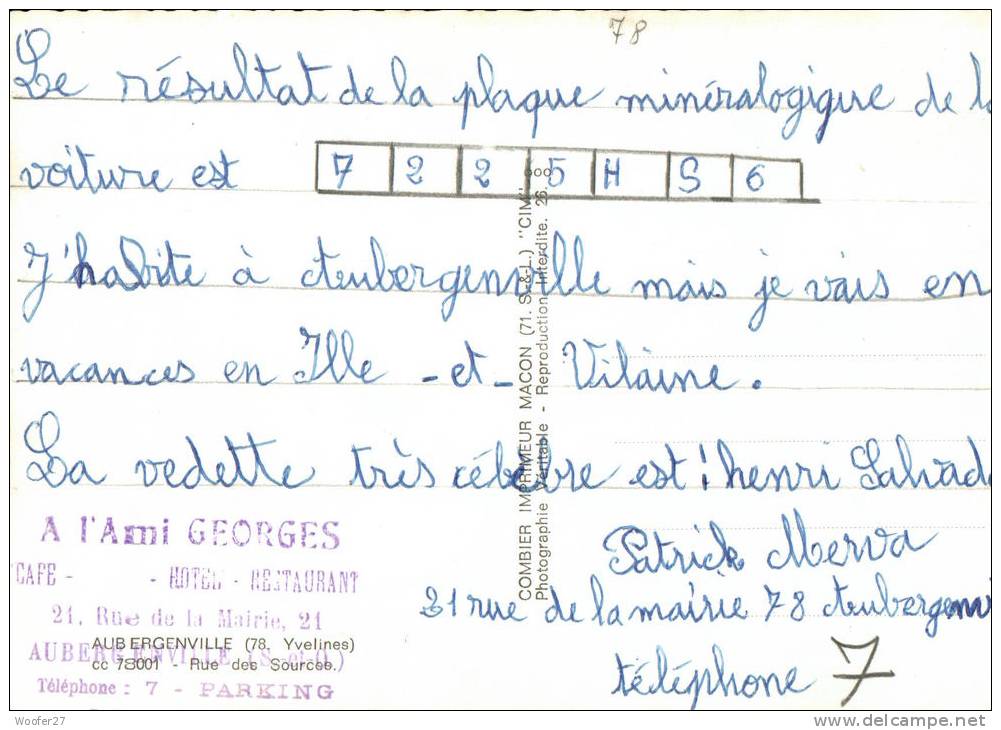 78
Le résultat de la plaque minéralogique de la
voiture est 7 2 2 5 H S 6
J'habite à Aubergenville mais je vais en
vacances en Ille - et - Vilaine.
La vedette très célèbre est : henri Salvado
Patrick Merva
21 rue de la mairie 78 Aubergenvi
téléphone 7
A l'Ami GEORGES
CAFE - - HOTEL - RESTAURANT
21, Rue de la Mairie, 21
AUBERGENVILLE (S.-et-O.)
Téléphone : 7 - PARKING
AUBERGENVILLE (78. Yvelines)
cc 78001 - Rue des Sources.
COMBIER IMPRIMEUR MACON (71. S.-&-L.) "CIM"
Photographie Véritable - Reproduction Interdite.
Woofer27
www.delcampe.net